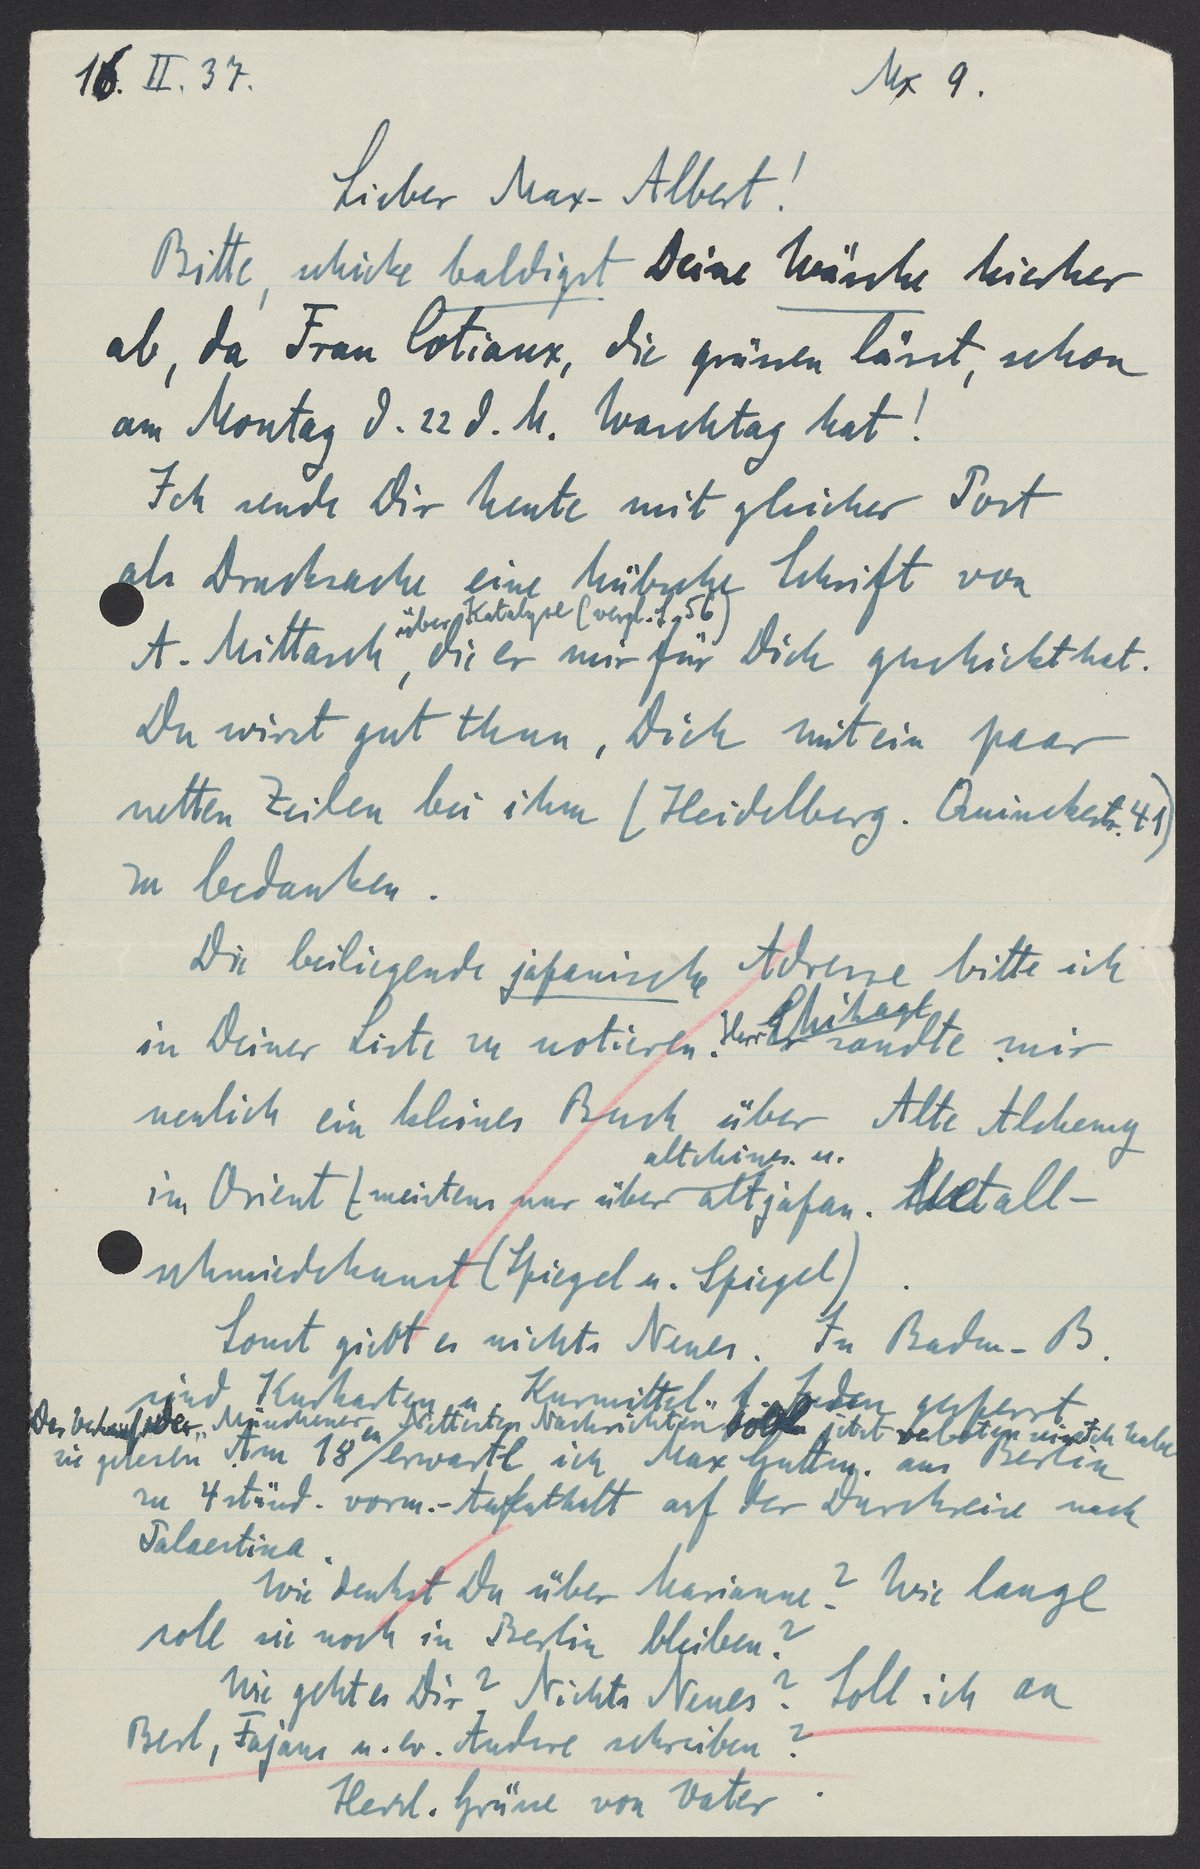 16. II. 37.
Mx 9.
Lieber Max-Albert!
Bitte, schicke baldigst Deine Wäsche hierher
ab, da Frau Cotiaux, die grüssen lässt, schon
am Montag d. 22 d. M. Waschtag hat!
Ich sende Dir heute mit gleicher Post
als Drucksache eine hübsche Schrift von
über Katalyse (vergl. S. 56)
A. Mittasch, die er mir für Dich geschickt hat.
Du wirst gut thun, Dich mit ein paar
netten Zeilen bei ihm (Heidelberg. Quinckestr. 41)
zu bedanken.
Die beiliegende japanische Adresse bitte ich
in Deiner Liste zu notieren. Herr Chikashige sandte mir
neulich ein kleines Buch über Alte Alchemy
altchines. u.
im Orient (meistens nur über altjapan. Metall-
schmiedekunst (Spiegel u. Spiegel)
Sonst giebt es nichts Neues. In Baden-B.
sind Kurkarten u. Kurmittel f. Juden gesperrt
Der Verkauf der "Münchener Neuesten Nachrichten" soll jetzt verboten sein. Ich habe
sie gelesen Am 18 en erwarte ich Max Guttm. aus Berlin
zu 4 stünd. vorm.-Aufenthalt auf der Durchreise nach
Palaestina.
Wie denkst Du über Marianne? Wie lange
soll sie noch in Berlin bleiben?
Wie geht es Dir? Nichts Neues? Soll ich an
Berl, Fajans u. ev. Andere schreiben?
Herzl. Grüsse von Vater